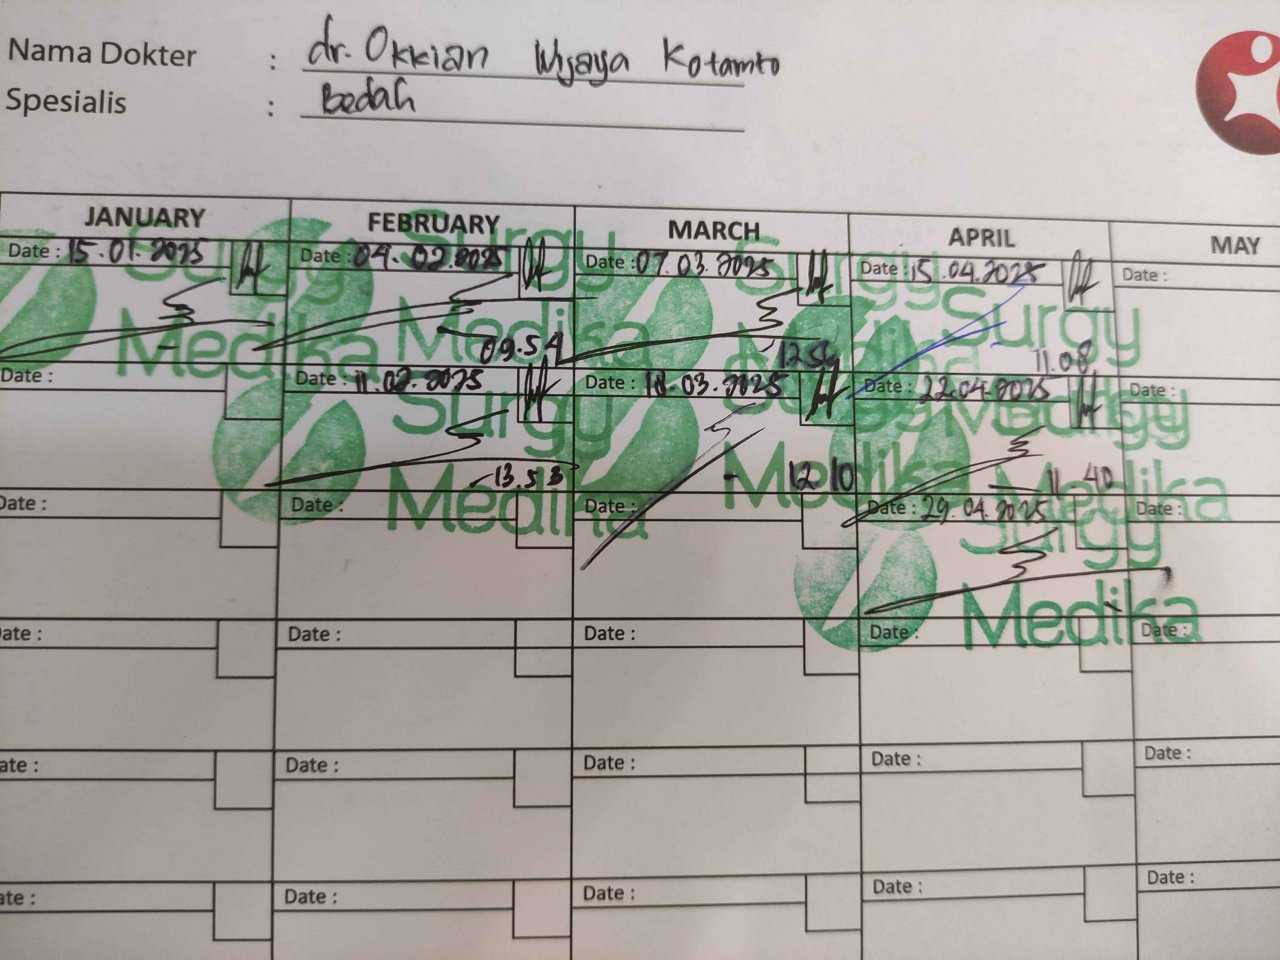 Nama Dokter : dr. Okkian Wijaya Kotamto
Spesialis : Bedah
JANUARY FEBRUARY MARCH APRIL MAY
Date : 15.01.2025 Date : 04.02.2025 Date : 07.03.2025 Date : 15.04.2025 Date :
Surgy Surgy Surgy Surgy
Medika Medika Medika Medika
09.54 12.54 11.08
Date : Date : 11.02.2025 Date : 18.03.2025 Date : 22.04.2025 Date :
Surgy Surgy Surgy
Medika Medika Medika
13.53 12.10 11.40
Date : Date : Date : Date : 29.04.2025 Date :
Surgy
Medika
ate : Date : Date : Date : Date :
ate : Date : Date : Date : Date :
ate : Date : Date : Date : Date :